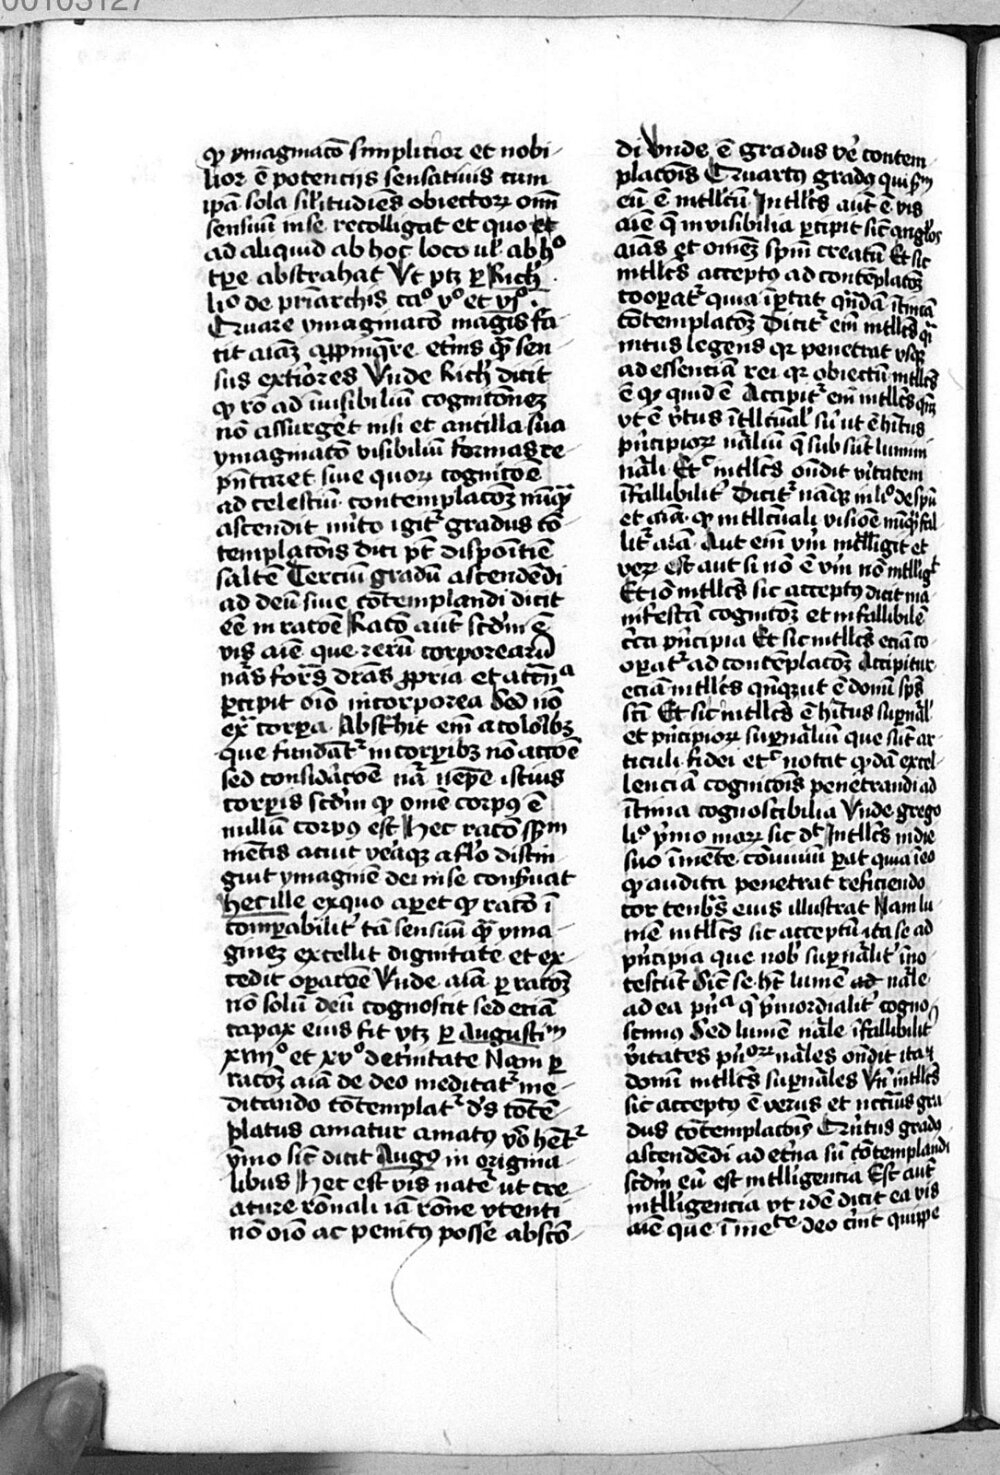 00103127
ꝙ ymaginaco̅ simplicior et nobi-
lior e̅ potencijs sensatiuis cum
ip̅a sola sil'itudie̅s obiectoꝝ om̅
sensiu̅ in se recolligat et quo et
ad aliquid ab hoc loco ul' ab hº
tꝑe abstrahat Vt ptꝫ ꝑ Rich'
liº de pri̅archis ca̅º vº et vjº.
Quare ymaginaco̅ magis fa-
cit ai̅aꝫ
sus exti̅ores Vnde Rich' dicit
ꝙ ro̅ ad i̅uisibiliu̅ cognico̅neꝫ
no̅ assurge̅t nisi et ancilla sua
ymaginaco̅ visibiliu̅ formas re-
pn̅taret siue quoꝝ cognico̅e
ad celestiu̅ contemplaco̅ꝫ nu̅qͣꝫ
ascendit m'ito igit^r gradus co̅-
templaco̅is dici p̅t dispo̅itie̅
salte̅ Terciu̅ gradu̅ ascende̅di
ad deu̅ siue co̅templandi dicit
e̅e in raco̅e Raco̅ aut̅ scd̅m e̅
vis ai̅e que reru̅ corporearu̅
na̅s for̅s dr̅as ꝓpria et acc̅nª
ꝑcipit oi̅o incorporea Sed no̅
ex̅ corꝑa Abst̅hit em̅ a
que fundant^r in corꝑibꝫ no̅ acco̅e
sed considaco̅e na̅ istius
corꝑis scd̅m ꝙ om̅e corpꝰ e̅
nullu̅ corpꝰ est Hec raco̅ spm̅
me̅tis acuit disti̅-
guit ymagine̅ dei in se conseruat
hec ille ex quo apet ꝙ raco̅ i̅
comꝑabilit' ta̅ sensiu̅ qͣꝫ yma-
gineꝫ excellit dignitate et ex-
cedit oꝑaco̅e Vnde ai̅a ꝑ raco̅ꝫ
no̅ solu̅ deu̅ cognoscit sed ecia̅
capax eius fit vtꝫ ꝑ Augusti^m
xiiijº et xvº de t'initate Nam ꝑ
raco̅ꝫ ai̅a de deo meditat^r me-
ditando co̅templat^r d's co̅te̅-
platus amatur amatꝰ v̊o he̅t^r
ymo sic̅ dicit Augꝰ in origina-
libus Hec est vis nat'e ut cre-
ature ro̅nali ia̅ ro̅ne vtenti
no̅ oi̅o ac penitꝰ posse absco̅-
di Vnde e̅ gradus ve̅ contem-
placo̅is Quartꝰ gradꝰ qui sm̅
eu̅ e̅ intl̅l'cu̅ Intl̅l'cs aut̅ e̅ vis
ai̅e q̅ inuisibilia ꝑcipit sic̅ angl̅os
ai̅as et omeꝫ spm̅ creatu̅ Et sic
intl̅l'cs acceptꝰ ad conte̅placo̅ꝫ
cooꝑat^r quia i̅ptat qn̅da̅ i̅tima̅
co̅templaco̅ꝫ Dicit^r em̅ intl̅l'cs qͥ
intus legens qꝛ penetrat vsqꝫ
ad essencia̅ rei qꝛ obiectu̅ intl̅l'cs
e̅ ꝙ quid e̅ Accipit^r em̅ intl̅l'cs qn̅qꝫ
vt e̅ v̊tus i̅tl̅l'cual' su̅ ut e̅ hi̅tus
pn̅cipioꝝ na̅liu̅ q̅ sub su̅t lumini
na̅li Et^c intl̅l'cs on̅dit v'itatem
i̅fallibilit' Dicit^r na̅qꝫ in liº de spu̅
et ai̅a ꝙ intl̅l'cuali visio̅e nu̅qͣ fal-
lit^r ai̅a Aut em̅ vm̅ intelligit et
veꝝ est aut si no̅ e̅ vm̅ no̅ intlligt
Et io̅ intl̅l'cs sic acceptꝰ dicit ma-
nifesta̅ cognico̅ꝫ et infallibile̅
c̊ca pn̅cipia Et sic intl̅l'cs ecia̅ co-
oꝑat^r ad conte̅placo̅ꝫ Accipitur
ecia̅ intl̅l'cs qn̅qꝫ ut e̅ donu̅ sp̅s
sc̅i Et sic intl̅l'cs e̅ hi̅tus suꝑna̅l'
et pn̅cipioꝝ suꝑna̅liu̅ que su̅t ar-
ticuli fidei et^c notat qn̅da̅ excel-
lencia̅ cognico̅is penetrandi ad
i̅tima cognoscibilia Vnde grego
liº p̊mo moꝝ sic d̅t Intl̅l'cs in die
suo i̅ me̅te co̅uiuiu̅ parat quia i̅eo
ꝙ audita penetrat reficiendo
cor teneb̅s eius illustrat Nam lu-
me̅ intl̅l'cs sic acceptu̅ ita se ad
pn̅cipia que nob' suꝑna̅lit' i̅no-
tescu̅t sic̅ se h̅t lume̅ na̅le
ad ea pn̅ª q̅ p̊mordialit' cogno-
scimꝰ Sed lume̅ na̅le i̅fallibilit'
v'itates pn̅oꝝ na̅les on̅dit ita
donu̅ intl̅l'cs suꝑna̅les Vn̅ intl̅l'cs
sic acceptꝰ e̅ verus et gra-
dus co̅templaco̅is Qui̅tus gradꝰ
ascende̅di ad et'na su̅ co̅templandi
scd̅m eu̅ est intelligencia Est aut̅
intelligencia vt ide̅ dicit ea vis
ai̅e que i̅me^te deo quippe